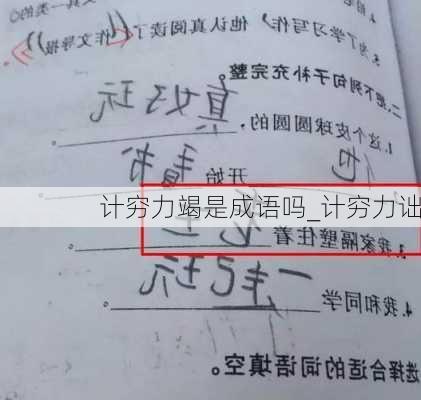 5.为了学习写作,他认真阅读了《作文导报》。
二、把下列句子补充完整。
1.这个皮球圆圆的,真好玩。
他开始看书。
计穷力竭是成语吗_计穷力诎
3.我家隔壁住着
4.我和同学一起玩。
选择合适的词语填空。